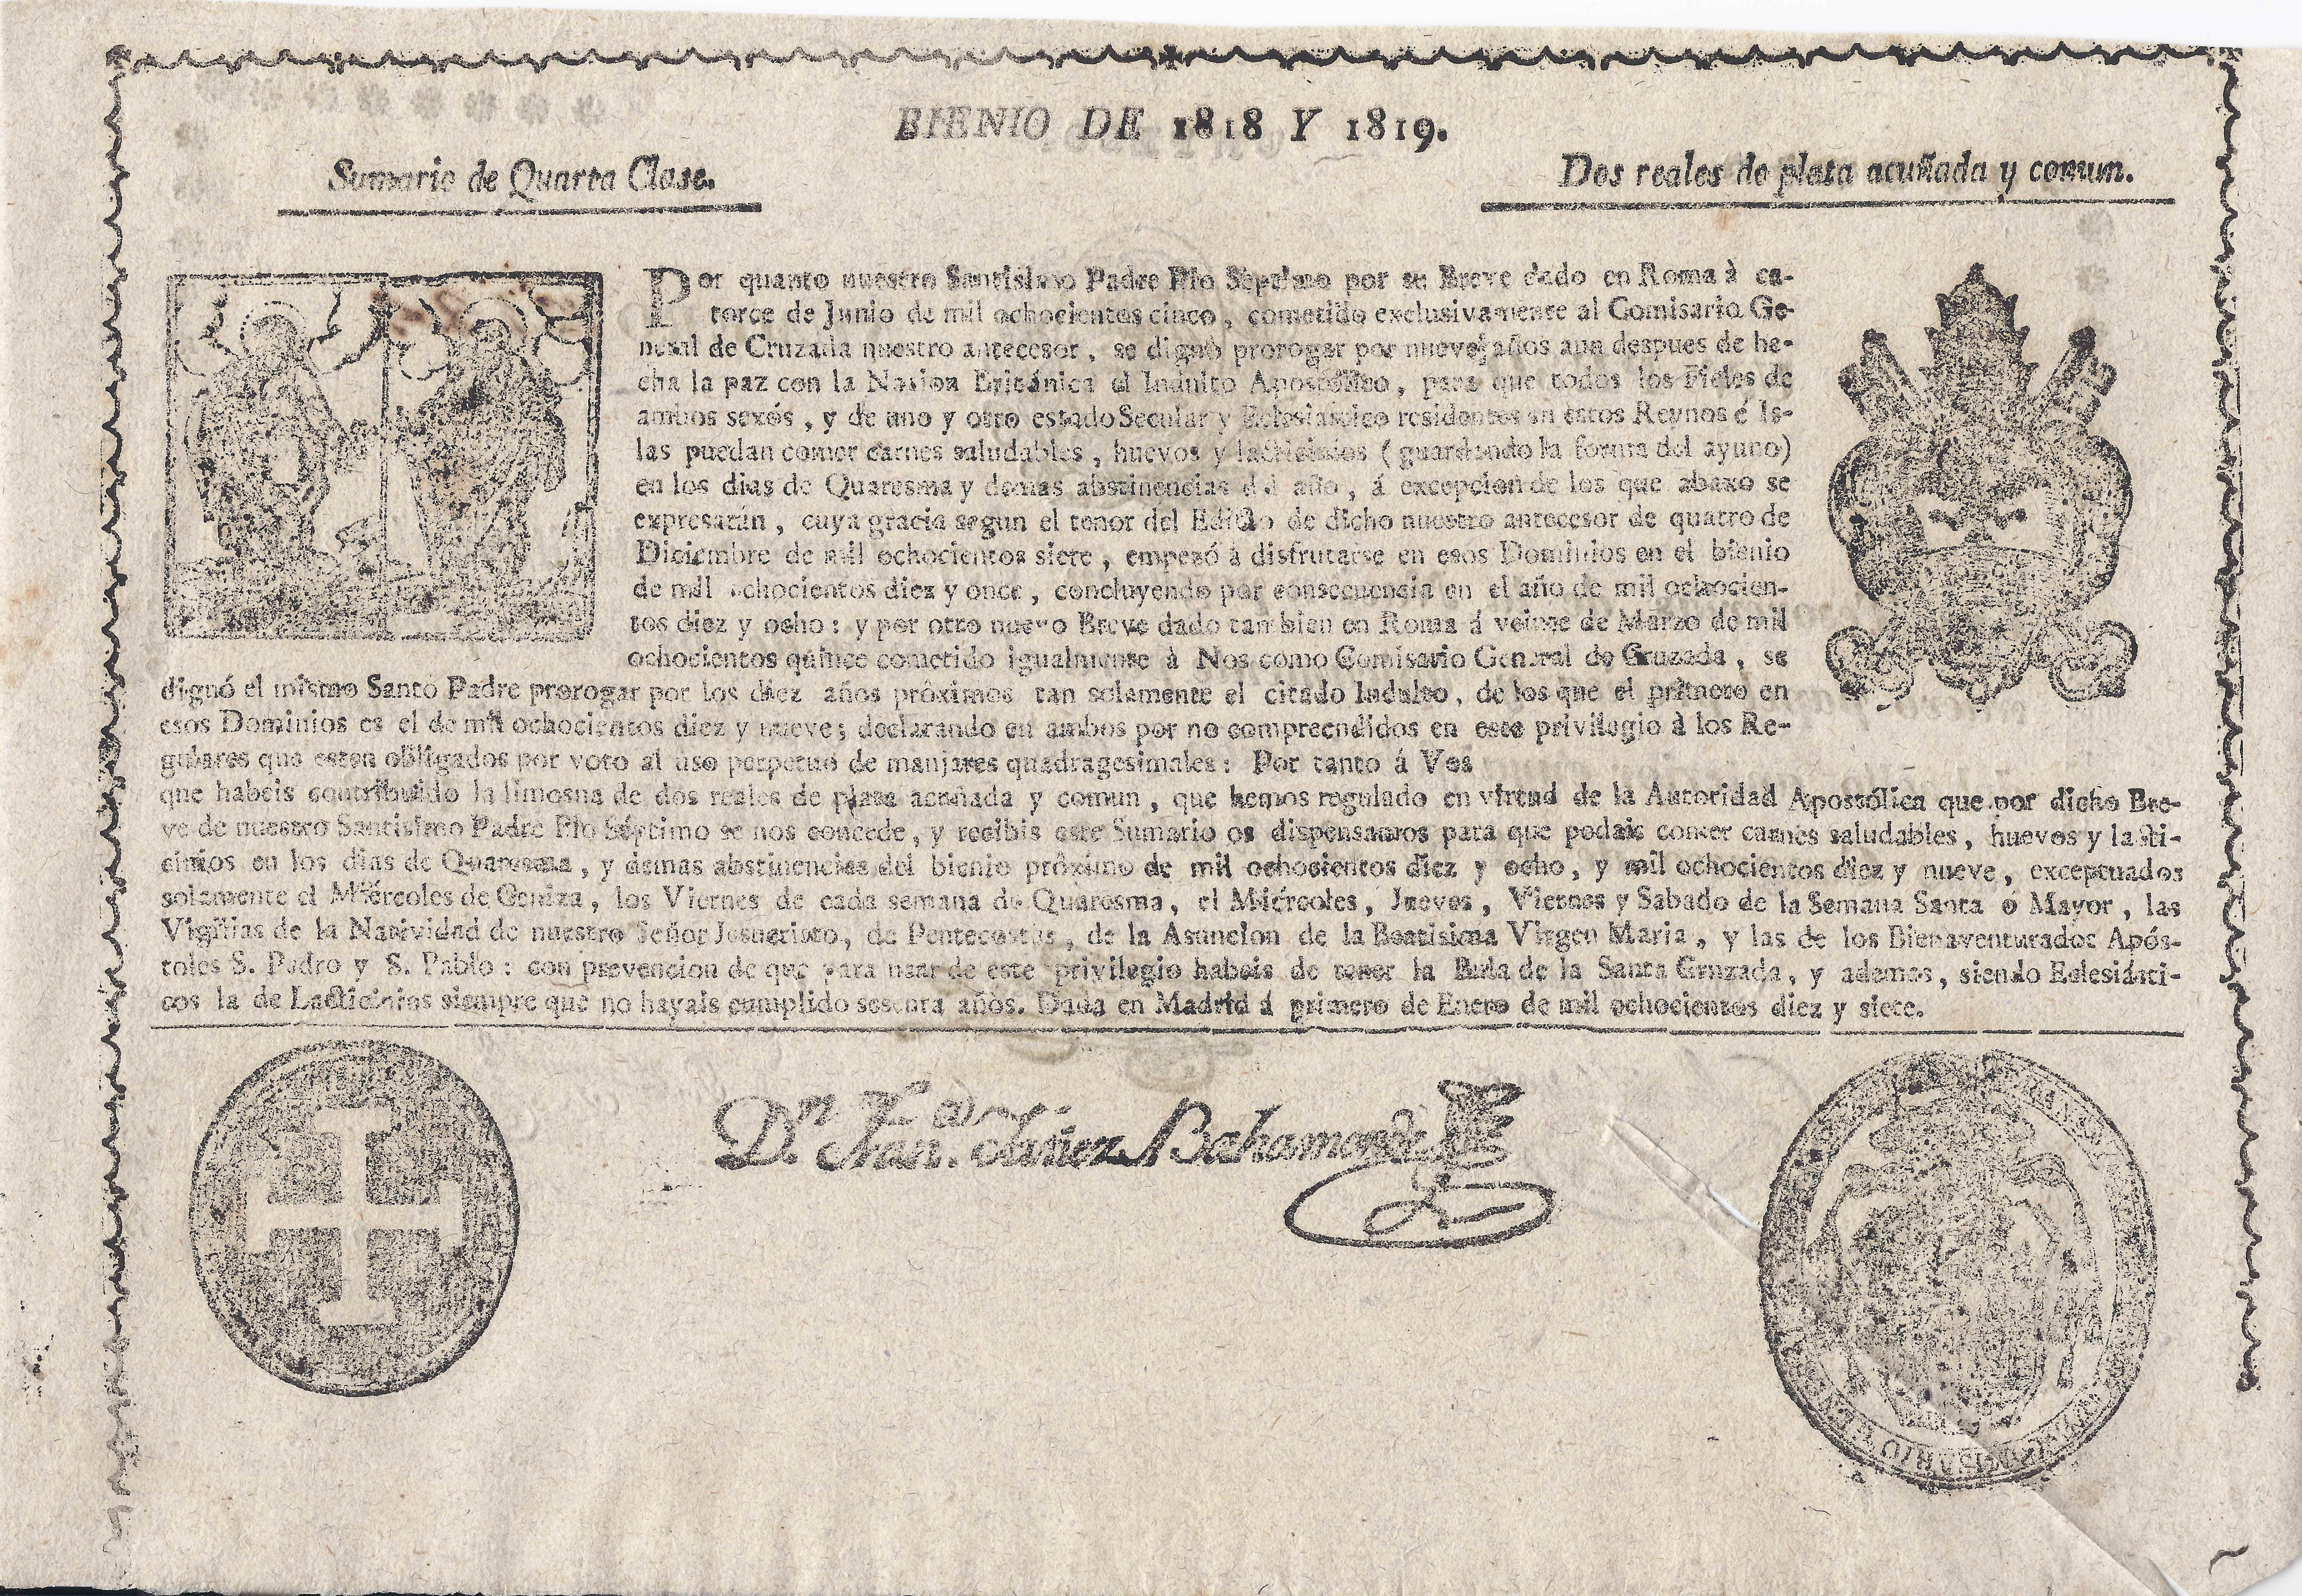 BIENIO DE 1818 Y 1819.
Sumario de Quarta Clase.
Dos reales de plata acuñada y comun.
Por quanto nuestro Santisimo Padre Pio Séptimo por su Breve dado en Roma à ca-
torce de Junio de mil ochocientos cinco, cometido exclusivamente al Comisario Ge-
neral de Cruzada nuestro antecesor, se dignò prorogar por nueve años aun despues de he-
cha la paz con la Nacion Británica el Indulto Apostólico, para que todos los Fieles de
ambos sexôs, y de uno y otro estado Secular y Eclesiastico residentes en estos Reynos é Is-
las puedan comer carnes saludables, huevos y lacticinios (guardando la forma del ayuno)
en los dias de Quaresma y demas abstinencias del año, á excepcion de los que abaxo se
expresarán, cuya gracia segun el tenor del Edicto de dicho nuestro antecesor de quatro de
Diciembre de mil ochocientos siete, empezó à disfrutarse en esos Dominios en el bienio
de mil ochocientos diez y once, concluyendo por consecuencia en el año de mil ochocien-
tos diez y ocho: y por otro nuevo Breve dado tambien en Roma á veinte de Marzo de mil
ochocientos quince cometido igualmente à Nos como Comisario General de Cruzada, se
dignó el mismo Santo Padre prorogar por los diez años próximos tan solamente el citado Indulto, de los que el primero en
esos Dominios es el de mil ochocientos diez y nueve; declarando en ambos por no comprendidos en este privilegio à los Re-
gulares que esten obligados por voto al uso perpetuo de manjares quadragesimales: Por tanto á Vos
que habeis contribuido la limosna de dos reales de plata acuñada y comun, que hemos regulado en virtud de la Autoridad Apostólica que por dicho Bre-
ve de nuestro Santisimo Padre Pio Séptimo se nos concede, y recibis este Sumario os dispensamos para que podais comer carnes saludables, huevos y lacti-
cinios en los dias de Quaresma, y demas abstinencias del bienio próximo de mil ochocientos diez y ocho, y mil ochocientos diez y nueve, exceptuados
solamente el Miércoles de Ceniza, los Viernes de cada semana de Quaresma, el Miércoles, Jueves, Viernes y Sabado de la Semana Santa ó Mayor, las
Vigilias de la Natividad de nuestro Señor Jesucristo, de Pentecostes, de la Asuncion de la Beatisima Virgen Maria, y las de los Bienaventurados Após-
toles S. Pedro y S. Pablo: con prevencion de que para usar de este privilegio habeis de tener la Bula de la Santa Cruzada, y ademas, siendo Eclesiásti-
cos la de Lacticinios siempre que no hayais cumplido sesenta años. Dada en Madrid á primero de Enero de mil ochocientos diez y siete.
Dn. Fran.co Yañez Bahamonde